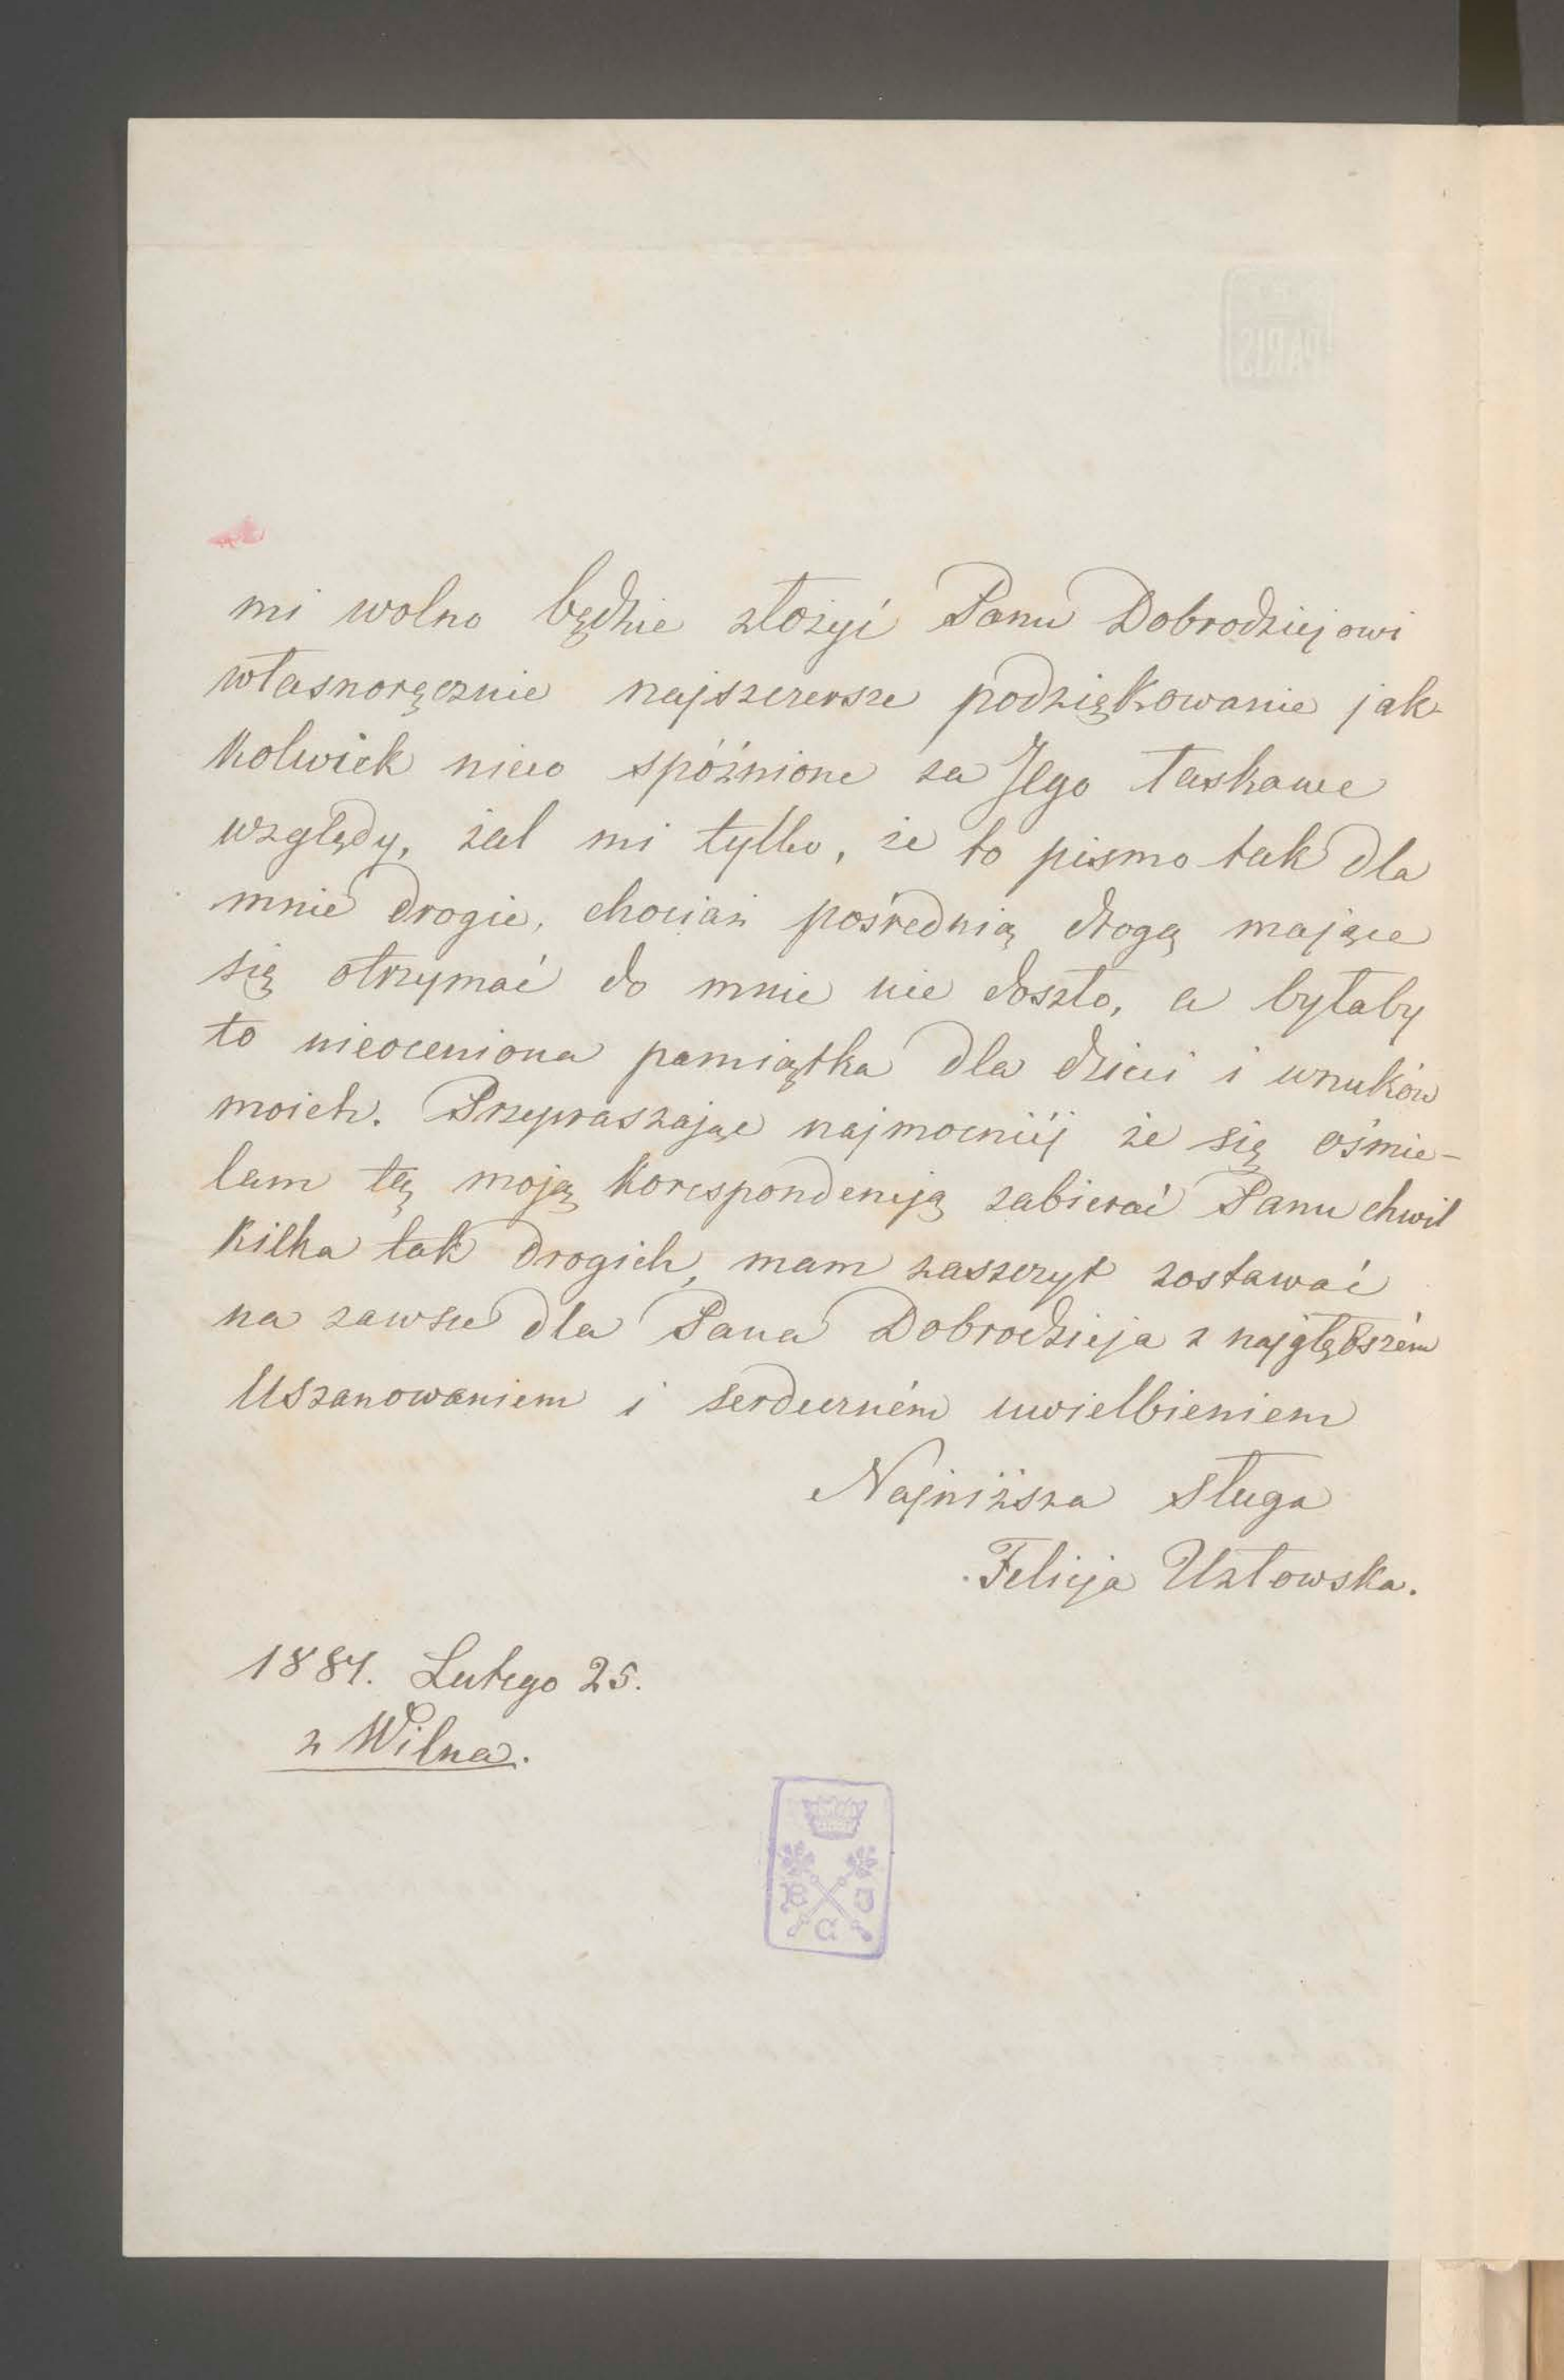 PARIS
mi wolno będzie złożyć Panu Dobrodziejowi
własnoręcznie najszczersze podziękowanie jak-
kolwiek nieco spóźnione za Jego łaskawe
względy, żal mi tylko, że to pismo tak dla
mnie drogie, chociaż pośrednią drogą mające
się otrzymać do mnie nie doszło, a byłaby
to nieoceniona pamiątka dla dzieci i wnuków
moich. Przepraszając najmocniéj że się ośmie-
lam tą moją korespondencją zabierać Panu chwil
kilka tak drogich, mam zaszczyt zostawać
na zawsze dla Pana Dobrodzieja z najgłębszém
Uszanowaniem i serdeczném uwielbieniem
Najniższa sługa
Felicja Uzłowska.
1884. Lutego 25.
z Wilna.
B J
C